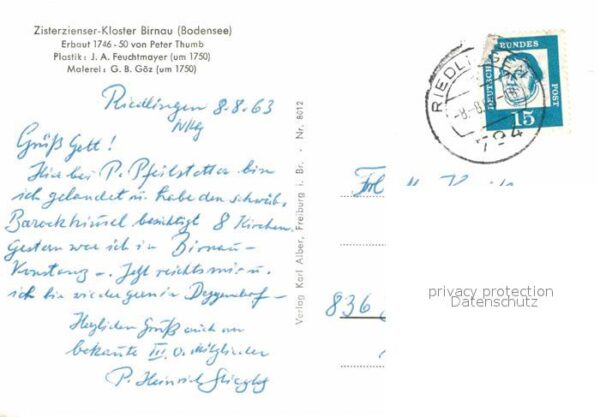 Zisterzienser-Kloster Birnau (Bodensee)
Erbaut 1746-50 von Peter Thumb
Plastik: J. A. Feuchtmayer (um 1750)
Malerei: G. B. Göz (um 1750)
Riedlingen 8.8.63
Grüß Gott!
Hier bei P. Pfeilstetter bin
ich gelandet u. habe den schwäb.
Barockhimmel besichtigt 8 Kirchen.
Gestern war ich in Birnau-
Konstanz -. Jetzt reichts mir u.
ich bin wieder gern in Deggendorf -
Herzlichen Gruß auch an
bekannte III. O. Mitglieder
P. Heinrich
Verlag Karl Alber, Freiburg i. Br. · Nr. 8012
RIEDLINGEN
-8.-8.
794
DEUTSCHE BUNDESPOST
15
Frl
836
privacy protection
Datenschutz